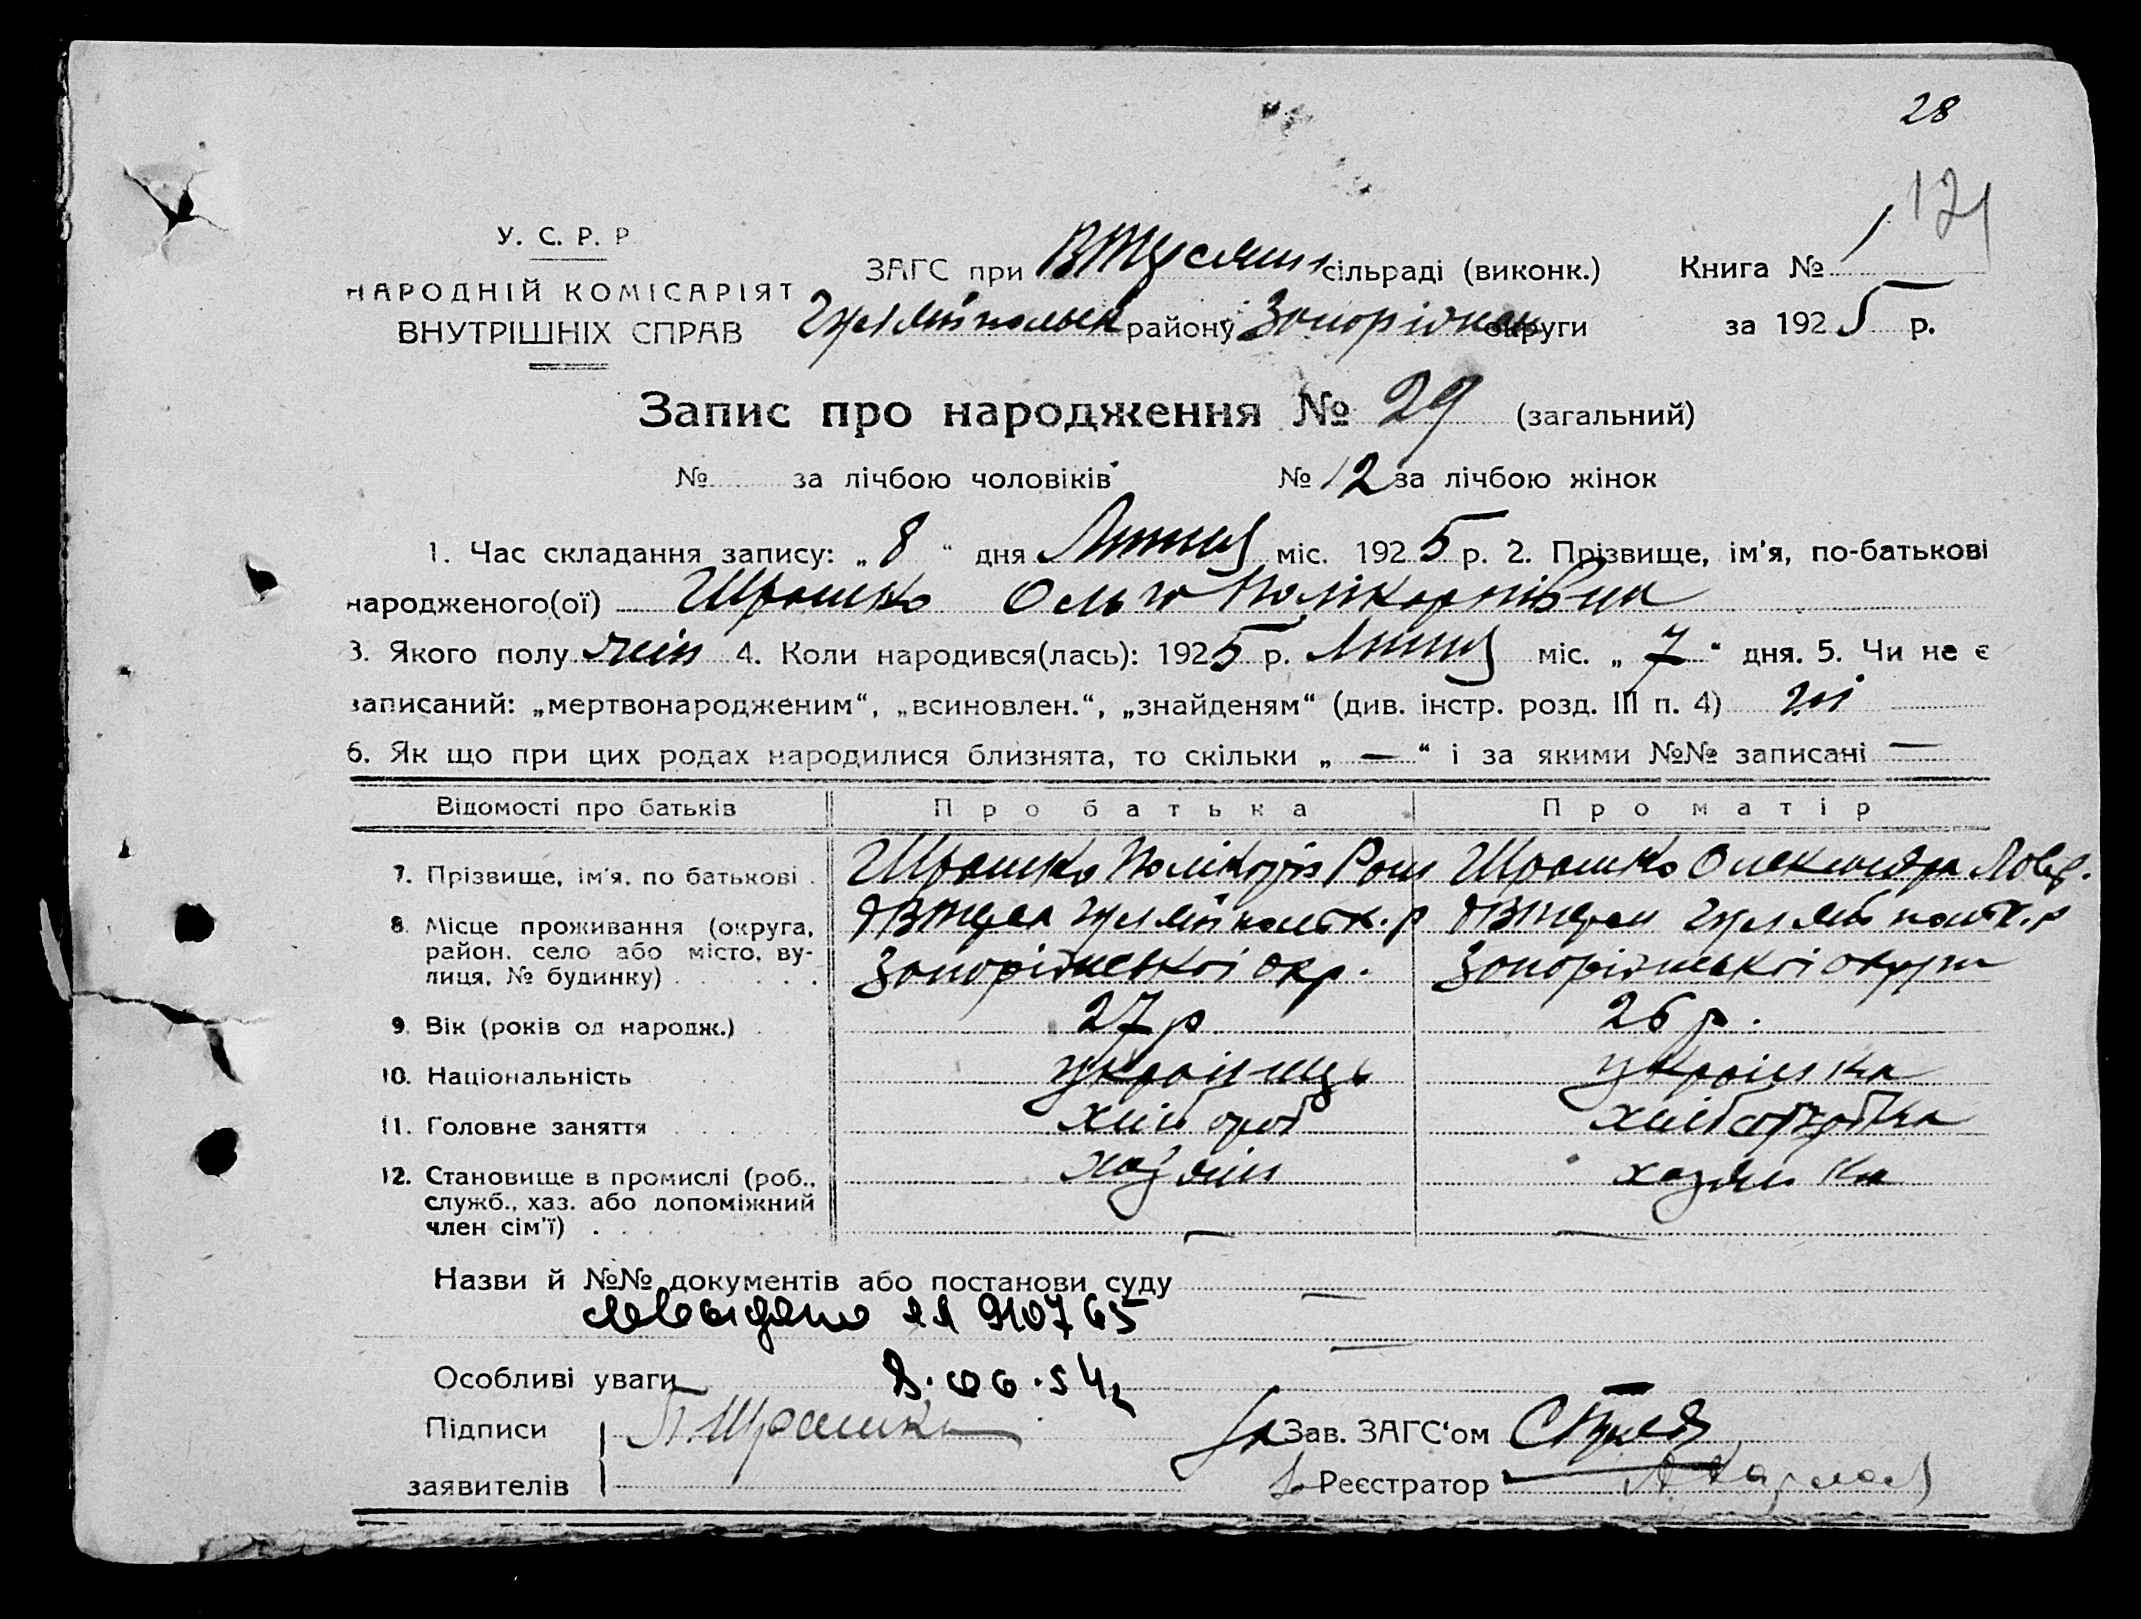 28
121
У. С. Р. Р.
НАРОДНІЙ КОМІСАРІЯТ
ВНУТРІШНІХ СПРАВ
ЗАГС при сільраді (виконк.) Книга № 1
Гуляйпольськ району Запоріжськ округи за 1925 р.
Запис про народження № 29 (загальний)
№ за лічбою чоловіків № 12 за лічбою жінок
1. Час складання запису: „ 8 “ дня міс. 1925 р. 2. Прізвище, ім'я, по-батькові
народженого(ої) Ольга Полікарпівна
3. Якого полу жін 4. Коли народився(лась): 1925 р. міс. „ 7 “ дня. 5. Чи не є
записаний: „мертвонародженим“, „всиновлен.“, „знайденям“ (див. інстр. розд. III п. 4) ні
6. Як що при цих родах народилися близнята, то скільки „ — “ і за якими №№ записані —
Відомості про батьків Про батька Про матір
7. Прізвище, ім'я, по батькові . Полікарп Ром Олександра
8. Місце проживання (округа, район, село або місто, вулиця, № будинку) Гуляйпольск. р Гуляйпольск. р
Запоріжської окр. Запоріжської округи
9. Вік (років од народж.) 27 р 26 р.
10. Національність українець українка
11. Головне заняття хлібороб хліборобка
12. Становище в промислі (роб., служб., хаз. або допоміжний член сім'ї) хазяїн хазяйка
Назви й №№ документів або постанови суду —
910765
Особливі уваги
Підписи П. Зав. ЗАГС'ом
заявителів Реєстратор